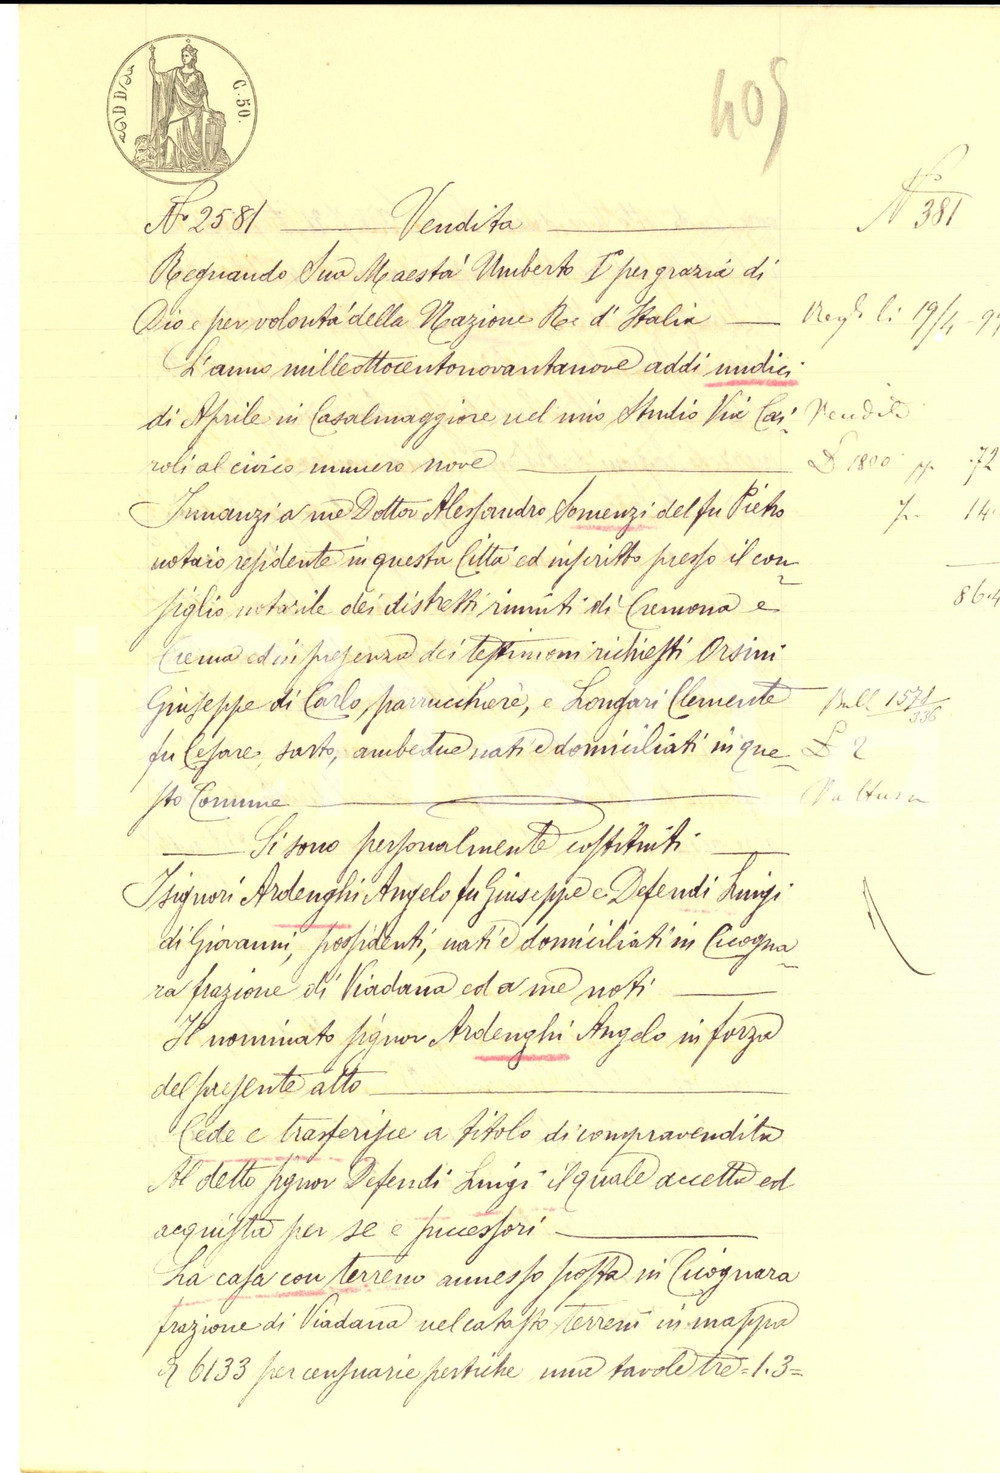 C. 50.
405
N° 2581 Vendita
N° 381
Regnando Sua Maestà Umberto I° per grazia di
Dio e per volontà della Nazione Re d'Italia
L'anno milleottocentonovantanove addi undici
di Aprile in Casalmaggiore nel mio Studio Via Cai-
roli al civico numero nove
Innanzi a me Dottor Alessandro Somenzi del fu Pietro
notaio residente in questa Città ed inscritto presso il con-
siglio notarile dei distretti riuniti di Cremona e
Crema ed in presenza dei testimoni richiesti Orsini
Giuseppe di Carlo, parrucchiere, e Longari Clemente
fu Cesare, sarto, ambedue nati e domiciliati in que-
sto Comune
Si sono personalmente costituiti
I signori Ardenghi Angelo fu Giuseppe e Defendi Luigi
di Giovanni, possidenti, nati e domiciliati in Cicogna-
ra frazione di Viadana ed a me noti
Il nominato signor Ardenghi Angelo in forza
del presente atto
Cede e trasferisce a titolo di compravendita
Al detto signor Defendi Luigi il quale accetta ed
acquista per se e successori
La casa con terreno annesso posta in Cicognara
frazione di Viadana nel catasto terreni in mappa
6133 per censuarie pertiche una tavole tre =1.3=
li 19/4 - 9
Vendita
L 1800 72
14
86.4
Bull 1571
336
L 2
Valtura